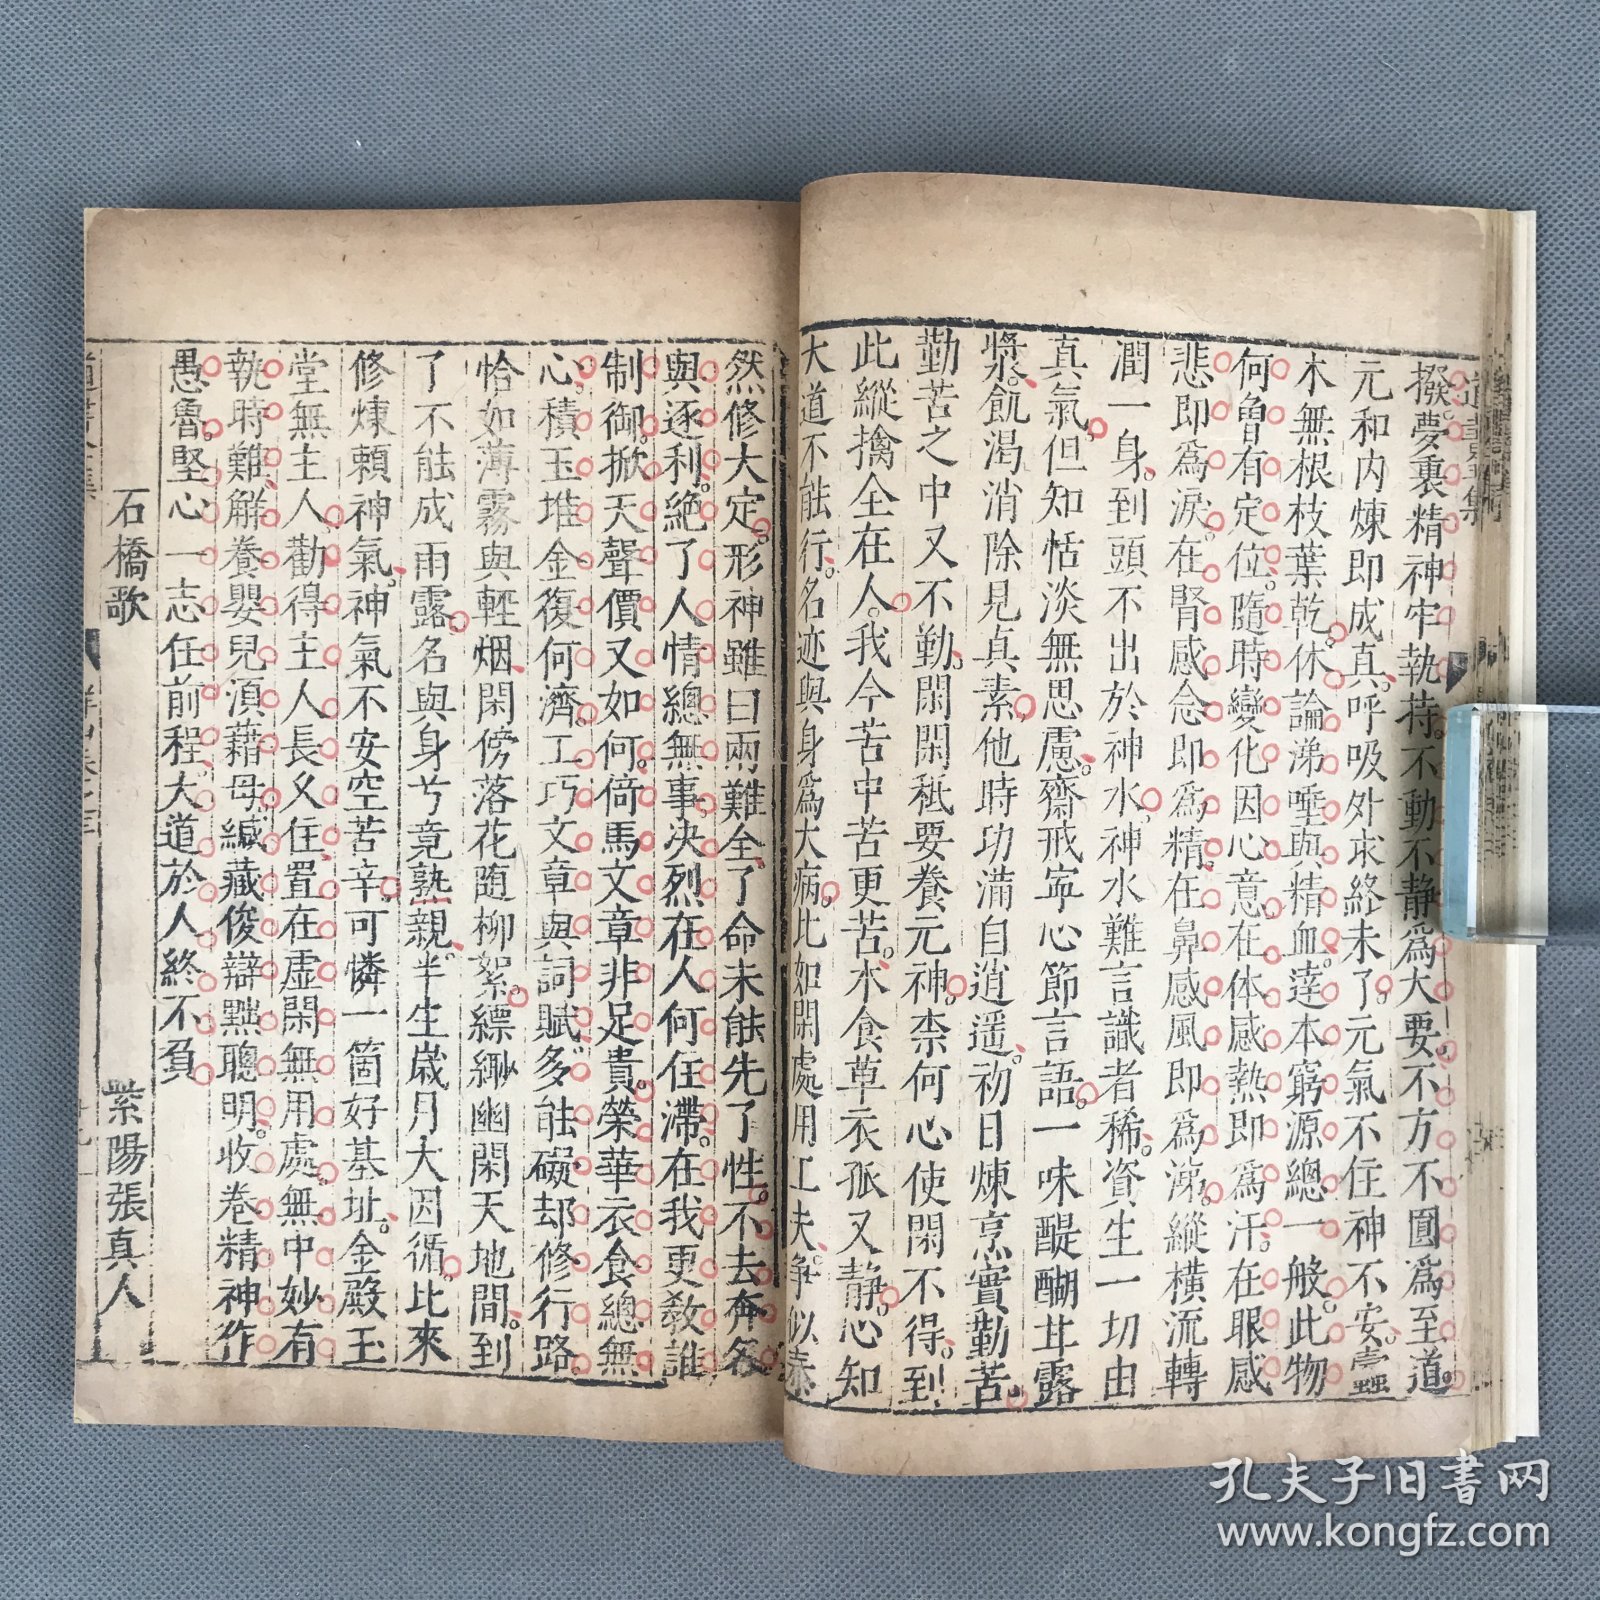 撥夢裏精神牢執持。不動不静爲大要。不方不圓爲至道。
元和内煉即成真。呼吸外求終未了。元氣不住神不安。蠹
木無根枝葉乾。休論涕唾與精血。達本窮源總一般。此物
何曾有定位。隨時變化因心意。在体感熱即爲汗。在眼感
悲即爲淚。在腎感念即爲精。在鼻感風即爲涕。縱横流轉
潤一身。到頭不出於神水。神水難言識者稀。資生一切由
真氣。但知恬淡無思慮。齋戒寧心節言語。一味醍醐甘露
漿。飢渴消除見真素。他時功滿自逍遥。初日煉烹實勤苦。
勤苦之中又不勤。閑閑秪要養元神。柰何心使閑不得。到
此縱擒全在人。我今苦中苦更苦。木食草衣孤又静。心知
大道不能行。名迹與身爲大病。比如閑處用工夫。争似泰
然修大定。形神雖曰兩難全。了命未能先了性。不去奔名
與逐利。絶了人情總無事。决烈在人何住滯。在我更教誰
制御。掀天聲價又如何。倚馬文章非足貴。榮華衣食總無
心。積玉堆金復何濟。工巧文章與詞賦。多能礙却修行路。
恰如薄霧與輕烟。閑傍落花随柳絮。縹緲幽閑天地間。到
了不能成雨露。名與身兮竟熟親。半生歳月大因循。比來
修煉頼神氣。神氣不安空苦辛。可憐一箇好基址。金殿玉
堂無主人。勸得主人長久住。置在虚閑無用處。無中妙有
執時難。解養嬰兒湏藉母。緘藏俊辯黜聰明。收卷精神作
愚魯。堅心一志任前程。大道於人終不負
石橋歌 紫陽張真人
孔夫子旧书网
www.kongfz.com